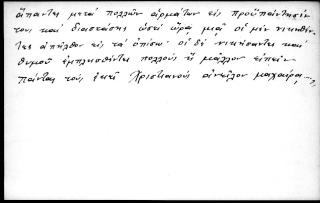 ἅπαντες μετὰ πολλῶν ἁρμάτων εἰς προϋπάντησίν
του καὶ διαστάσης ὡσεὶ ὥρα μιᾷ οἱ μὲν νικηθέν-
τες ἀπῆλθον εἰς τὰ ὀπίσω· οἱ δὲ νικήσαντες καὶ
θυμοῦ ἐμπλησθέντες πολλοὺς ἢ μᾶλλον εἰπεῖν
πάντας τοὺς ἐκεῖ Χριστιανοὺς ἀνεῖλον μαχαίρᾳ...,